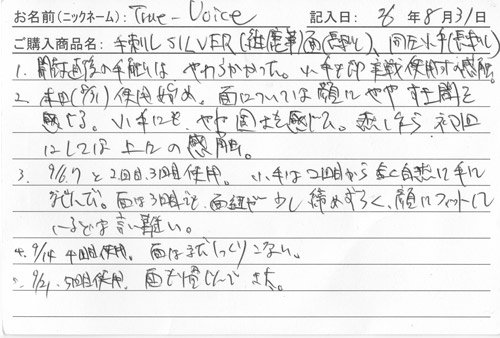 お名前(ニックネーム): True-Voice 記入日: 26年8月31日
ご購入商品名: 手刺し SILVER (雄鷹華)面(長刺し)、同左小手(長刺し)
1. 開封直後の手触りは やわらかかった。小手も即実戦使用可の感触。
2. 本日(8/31)使用始め。面については顔にやや すき間を
感じる。小手にも、やや固さを感じる。しかし 初回
にしては上々の感触。
3. 9/6.7と2回目、3回目使用。小手は2回目から全く自然に手に
なじんで。面は3回目も、面紐が少し締めずらく、顔にフィットして
いるとは言い難い。
4. 9/14 4回目使用。面はまだしっくりこない。
5. 9/21. 5回目使用。面も馴じんできた。